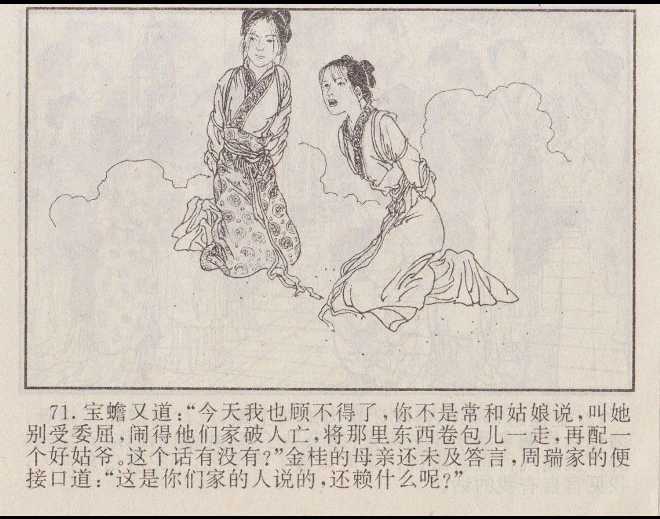 71. 宝蟾又道:“今天我也顾不得了,你不是常和姑娘说,叫她
别受委屈,闹得他们家破人亡,将那里东西卷包儿一走,再配一
个好姑爷。这个话有没有?”金桂的母亲还未及答言,周瑞家的便
接口道:“这是你们家的人说的,还赖什么呢?”